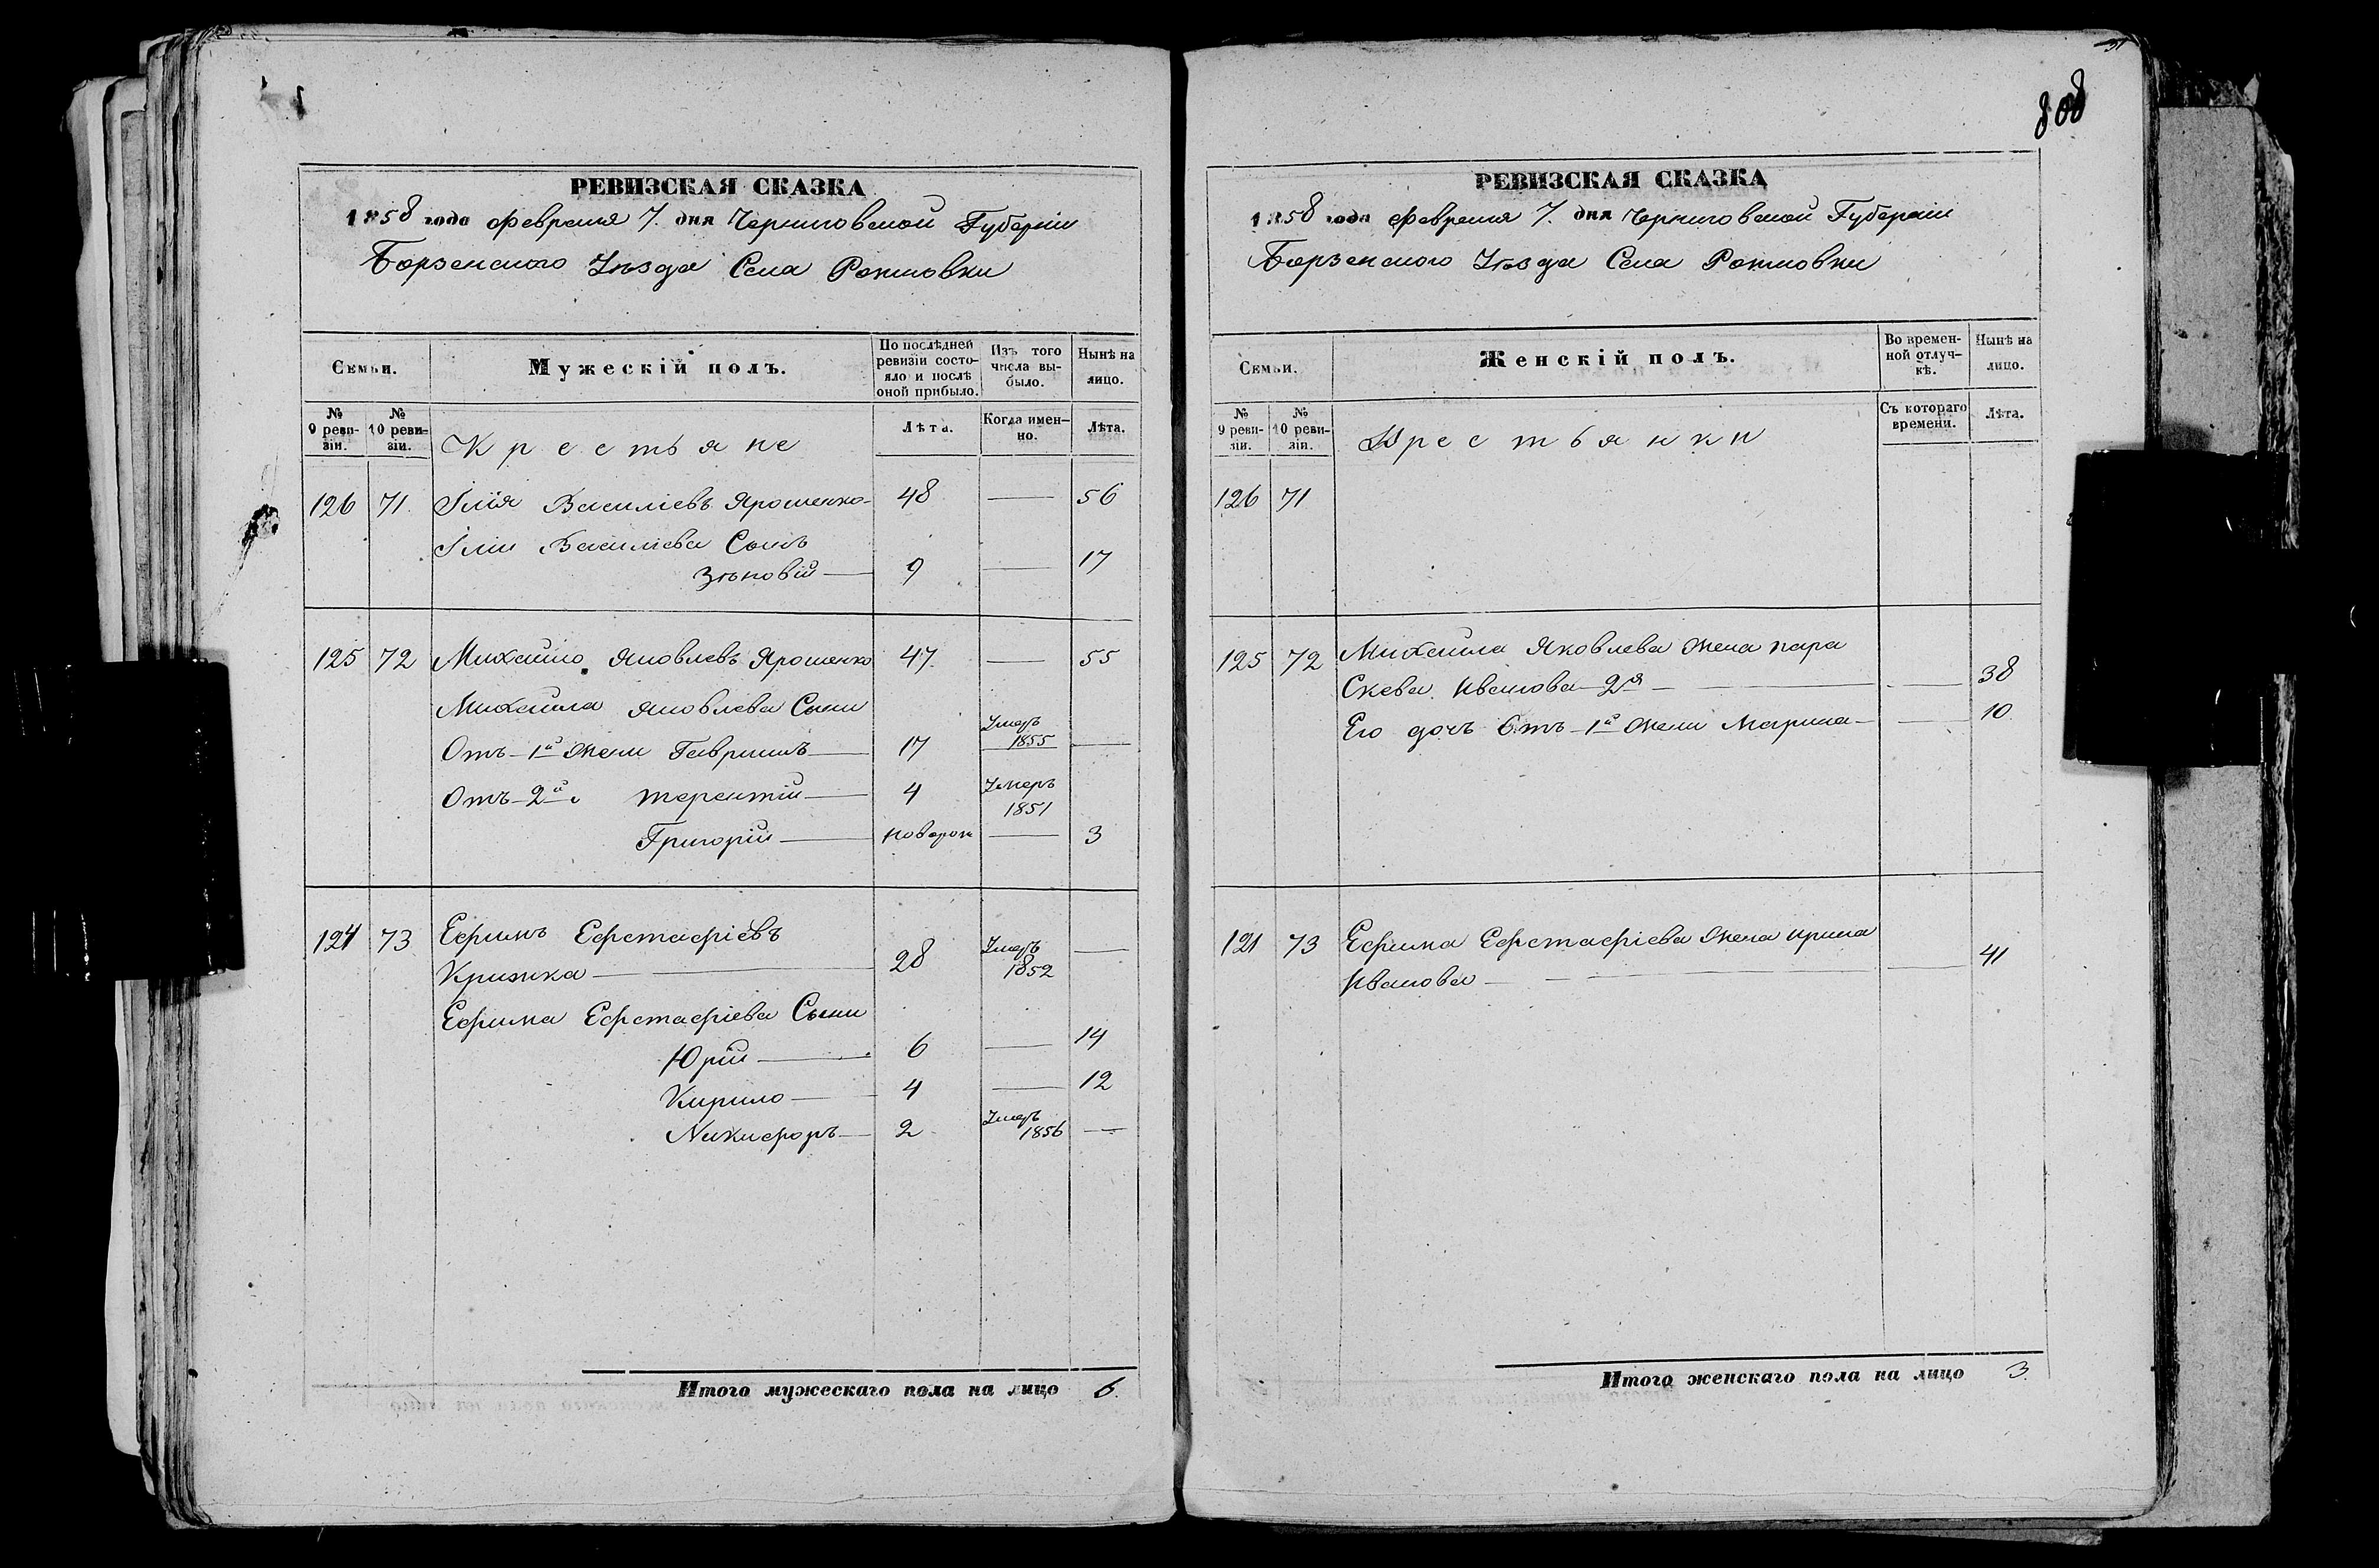 РЕВИЗСКАЯ СКАЗКА
1858 года февраля 7. дня Черниговской Губерніи
Борзенского Уѣзда Села Рожновки
Семьи.
Мужескій полъ.
По послѣдней ревизіи состо-
яло и послѣ оной прибыло.
Изъ того числа вы-
было.
Нынѣ на лицо.
№ 9 реви-
зіи.
№ 10 реви-
зіи.
Крестьяне
Лѣта.
Когда имен-
но.
Лѣта.
126 71. Илія Василіевъ Ярошенко- 48 — 56
Иліи Василіева Сынъ
Зѣновій — 9 — 17
125 72 Михайло Яковлевъ Ярошенко 47. — 55
Михаила Яковлева Сыни
Отъ 1й жени Гаврыилъ — 17 Умеръ 1855 —
Отъ 2й терентій — 4 Умеръ 1851
Григорій — новорож — 3
124 73 Ефимъ Ефстафіевъ
Крижка — 28 Умеръ 1852 —
Ефима Ефстафіева Сыни
Юрій — 6 — 14
Кирило — 4 — 12
Никифоръ — 2 Умеръ 1856 —
Итого мужескаго пола на лицо 6.
808
РЕВИЗСКАЯ СКАЗКА
1858 года февраля 7. дня Черниговской Губерніи
Борзенского Уѣзда Села Рожновки
Семьи.
Женскій полъ.
Во времен-
ной отлуч-
кѣ.
Нынѣ на лицо.
№ 9 реви-
зіи.
№ 10 реви-
зіи.
Крестьянки
Съ котораго времени.
Лѣта.
126 71
125 72 Михаила Яковлева жена пара
Скева Иванова 2я — — 38
Его дочъ Отъ 1й жени Марина — — 10.
121 73 Ефима Ефстафіева жена ирина
Иванова — — 41
Итого женскаго пола на лицо 3.